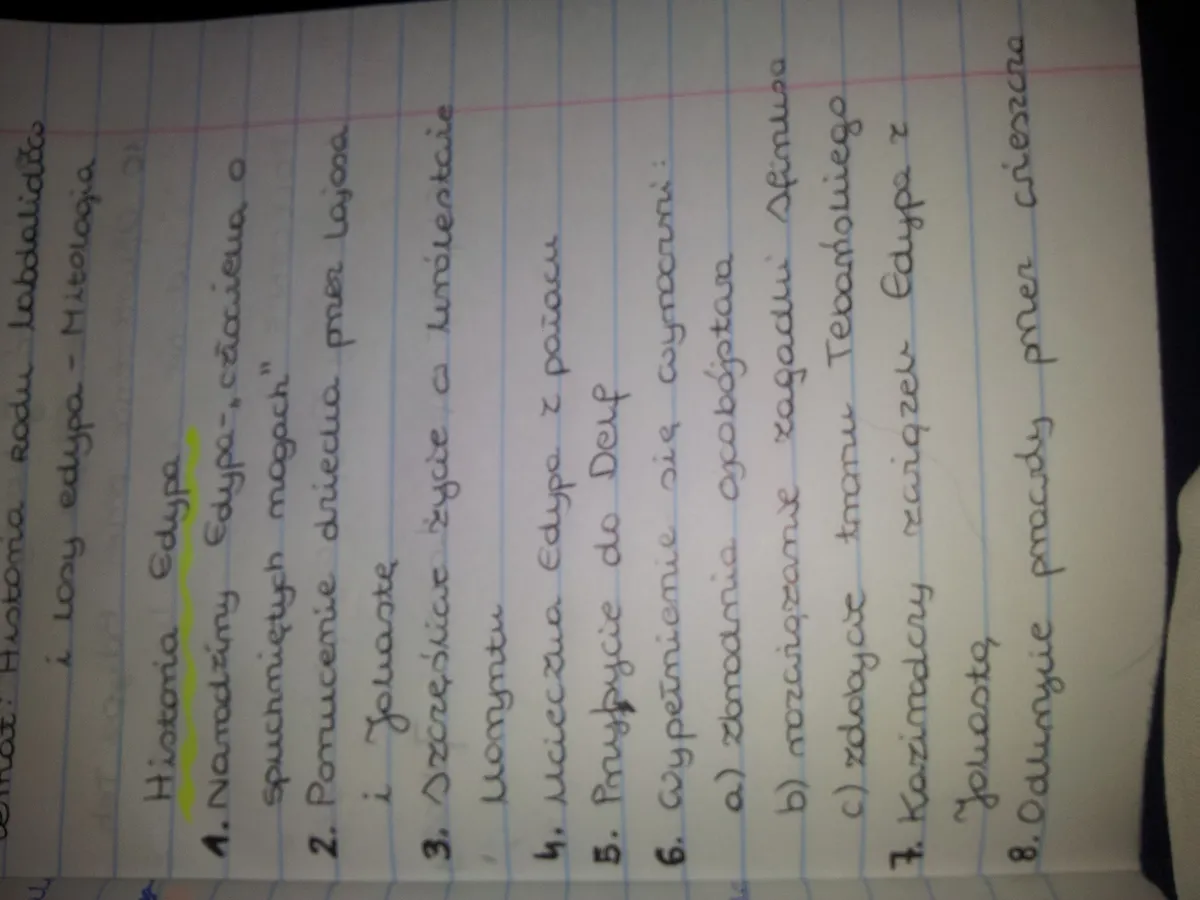 Temat: Historia rodu Labdalidów
i losy edypa - Mitologia
Historia Edypa
1. Narodziny Edypa - „człowieka o
spuchniętych nogach"
2. Porzucenie dziecka przez Lajosa
i Jokastę
3. Szczęśliwe życie w królestwie
Koryntu
4. Ucieczka Edypa z pałacu
5. Przybycie do Delf
6. Wypełnienie się wyroczni:
a) zbrodnia ojcobójstwa
b) rozwiązanie zagadki Sfinksa
c) zdobycie tronu Tebańskiego
7. Kazirodczy związek Edypa z
Jokastą
8. Odkrycie prawdy przez wieszcza